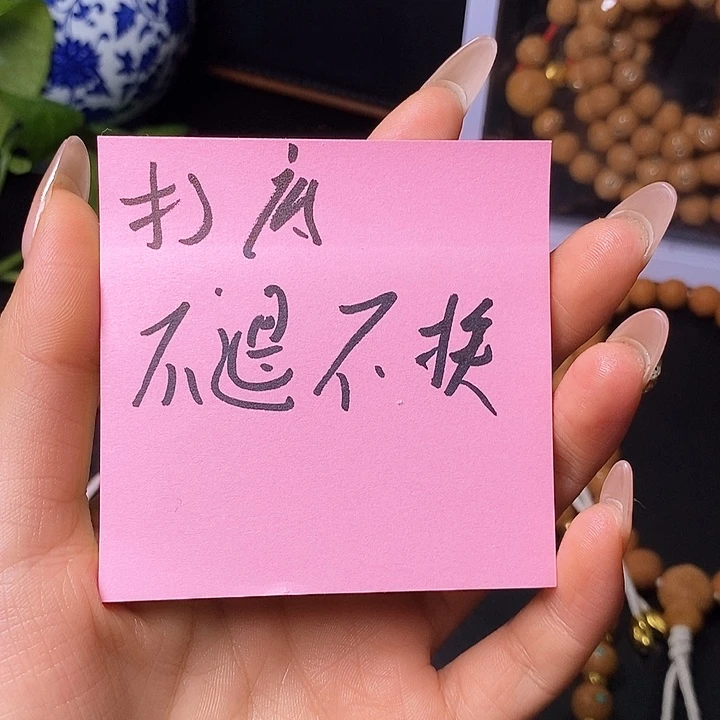 打底
不退不换